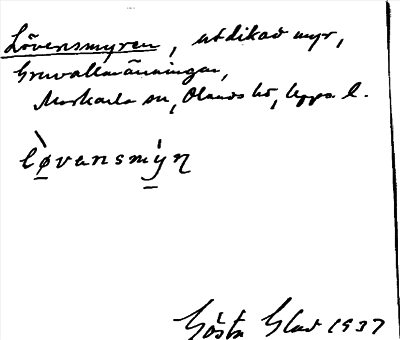 Lövensmyren, utdikad myr,
Gruvallmänningar,
Morkarla sn, Olands hd, Upps. l.
lø̱vensmy̱ŋ
Gösta Glad 1937